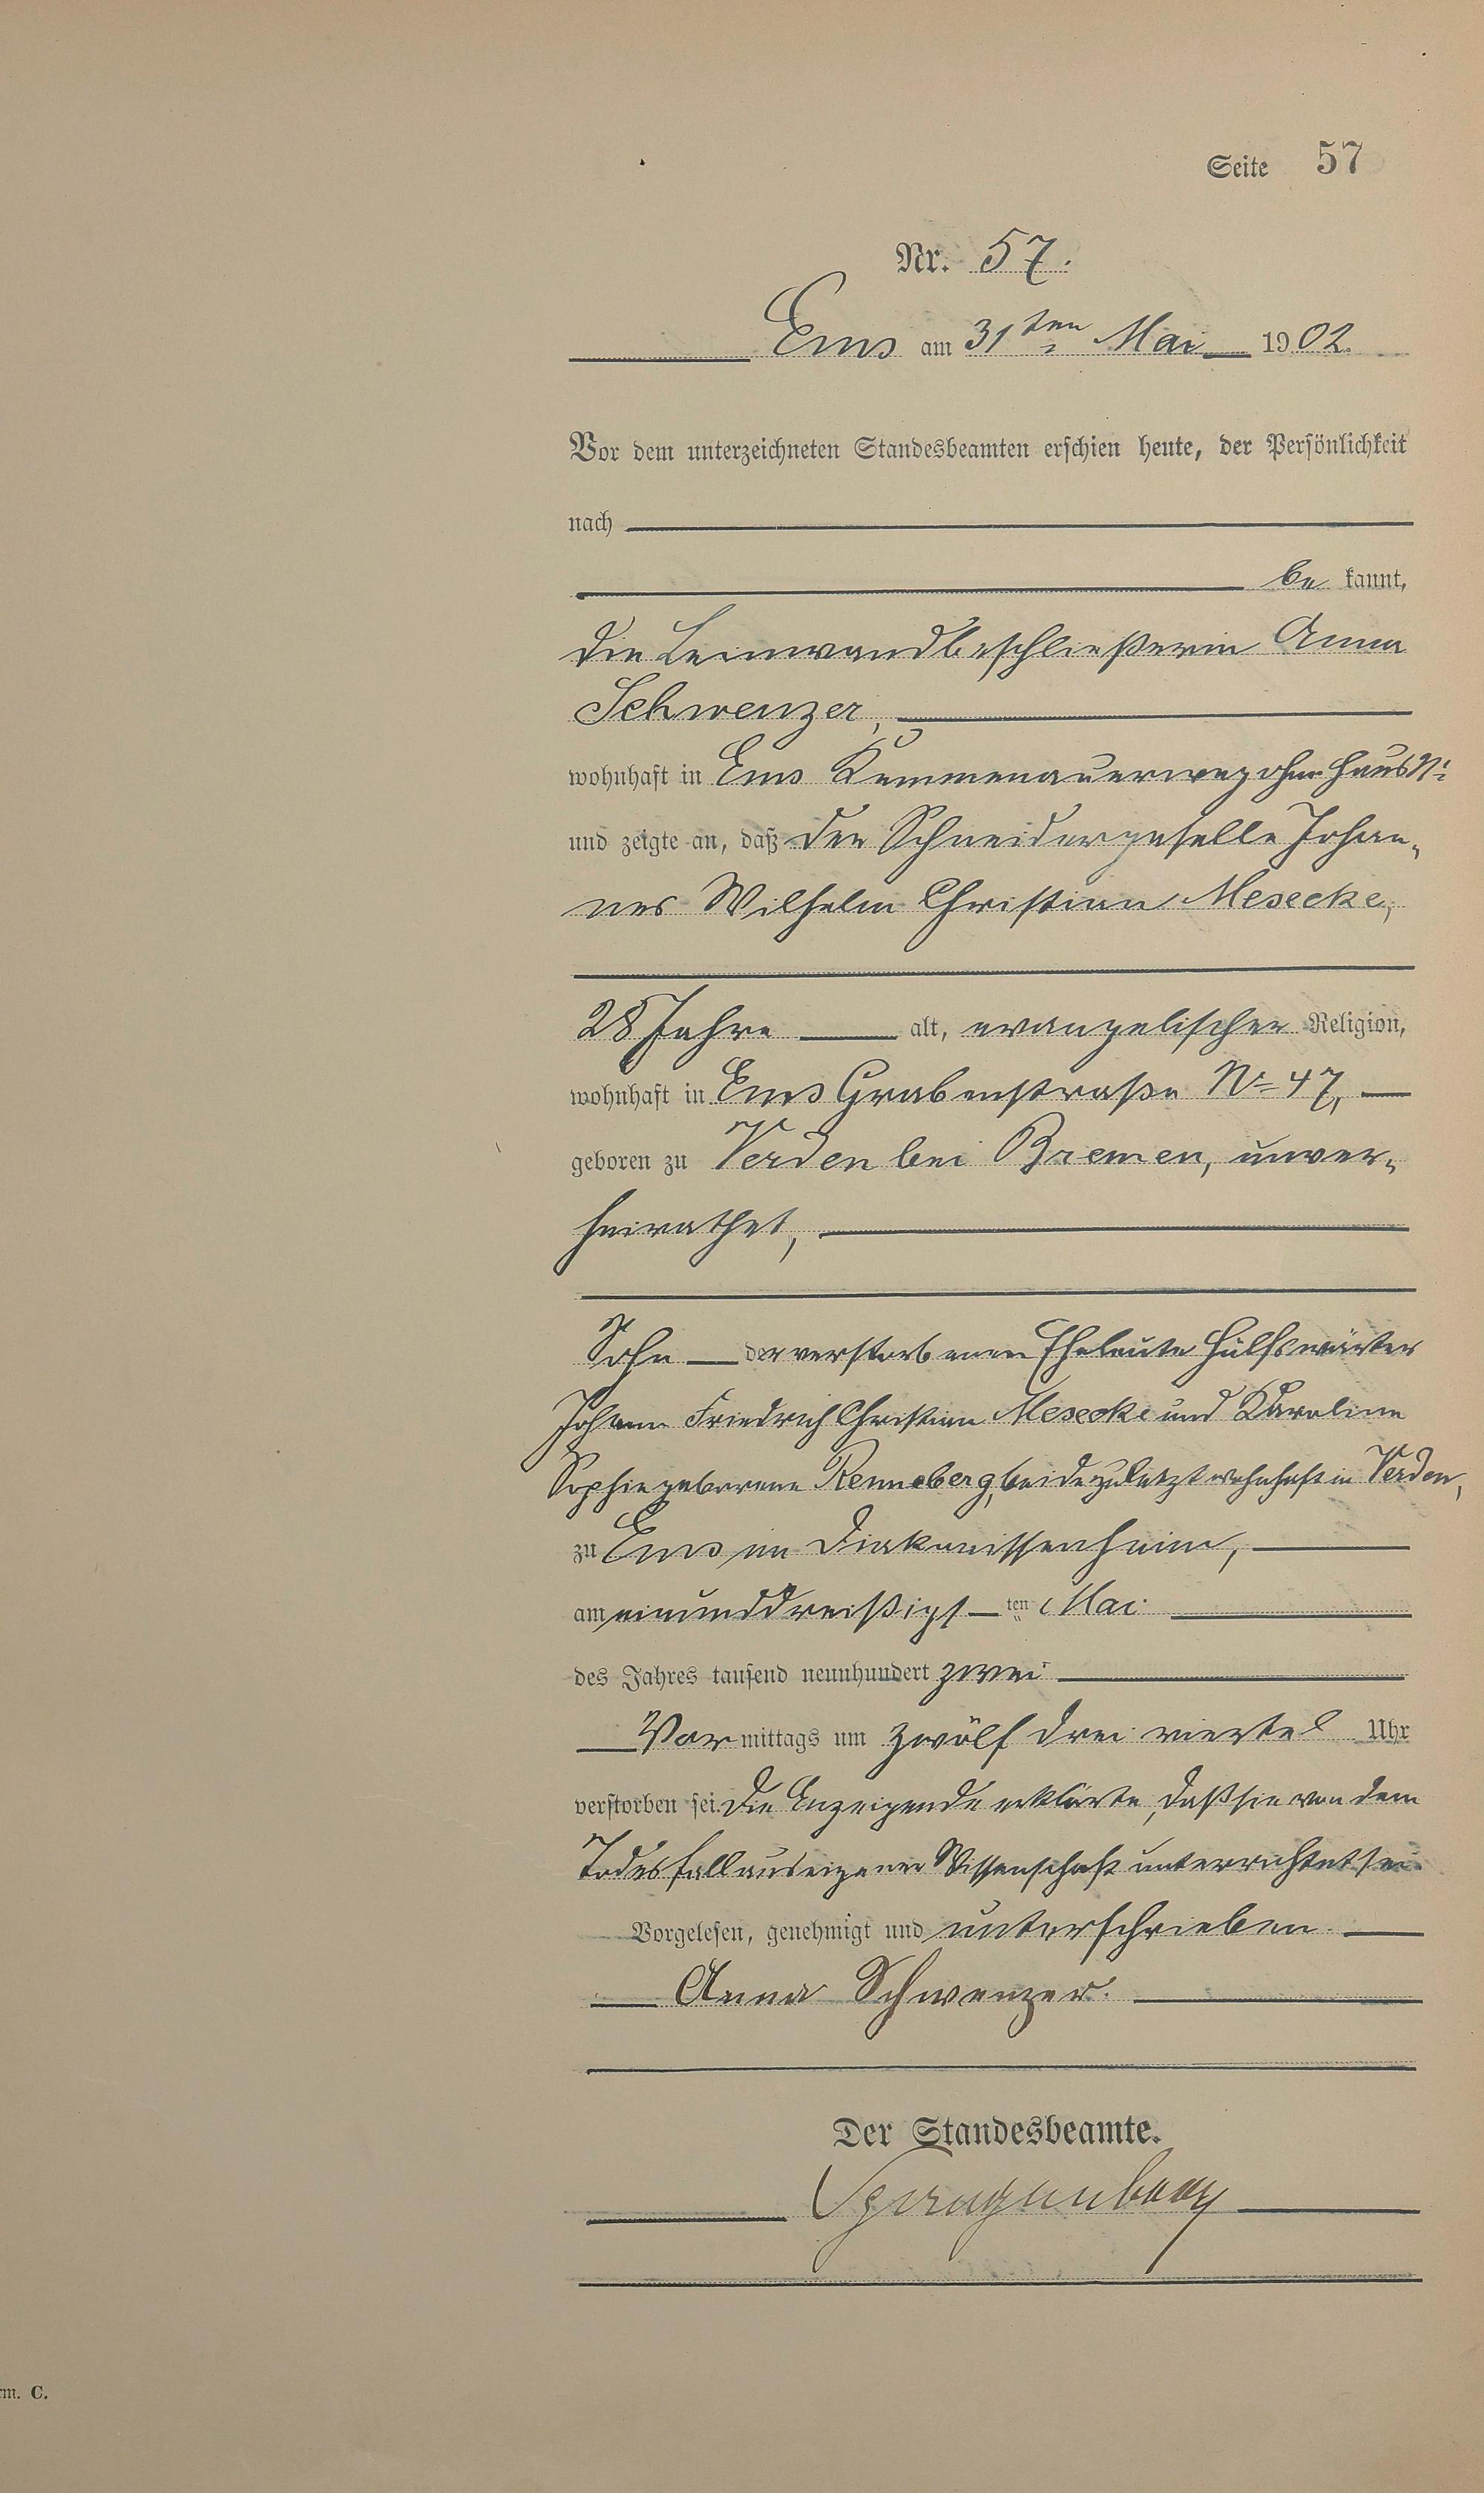 Seite 57
Nr. 57.
Ems am 31ten Mai 1902.
Vor dem unterzeichneten Standesbeamten erschien heute, der Persönlichkeit
nach
be kannt,
die Leinwandbeschließerin Anna
Schwenzer,
wohnhaft in Ems Kemmenauerweg ohne Haus No
und zeigte an, daß der Schneidergeselle Johan-
nes Wilhelm Christian Mesecke,
28 Jahre alt, evangelischer Religion,
wohnhaft in Ems Grabenstraße No 47,
geboren zu Verden bei Bremen, unver-
heirathet,
Sohn der verstorbenen Eheleute Hülfswärter
Johann Friedrich Christian Mesecke und Karoline
Sophie geborene Renneberg, beide zuletzt wohnhaft in Verden,
zu Ems im Diakonissenheim,
am einunddreißigst ten Mai
des Jahres tausend neunhundert zwei
Vor mittags um zwölf drei viertel Uhr
verstorben sei. Die Anzeigende erklärte, daß sie von dem
Todesfall aus eigener Wissenschaft unterrichtet sei.
Vorgelesen, genehmigt und unterschrieben.
Anna Schwenzer.
Der Standesbeamte.
rm. C.